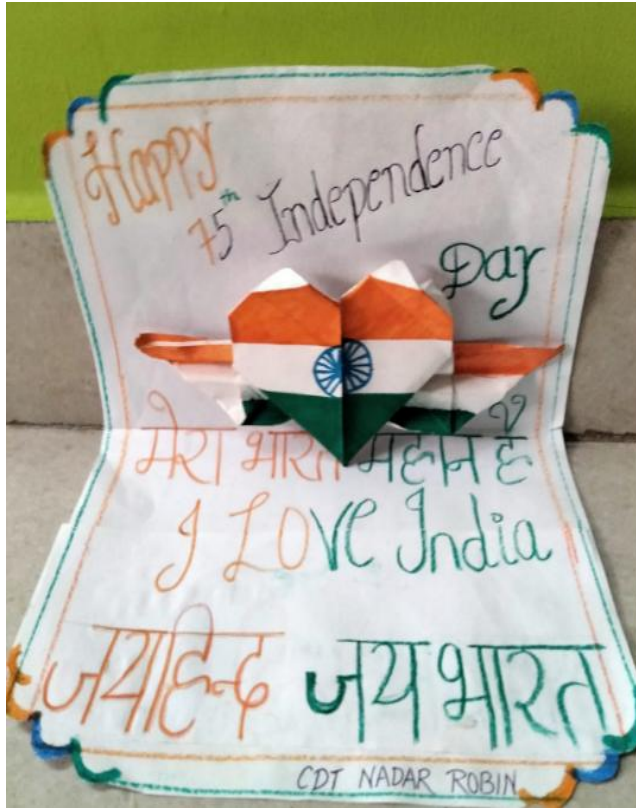 Happy
75th Independence
Day
मेरा भारत महान है
I LOve India
जयहिन्द जय भारत
CDT NADAR ROBIN